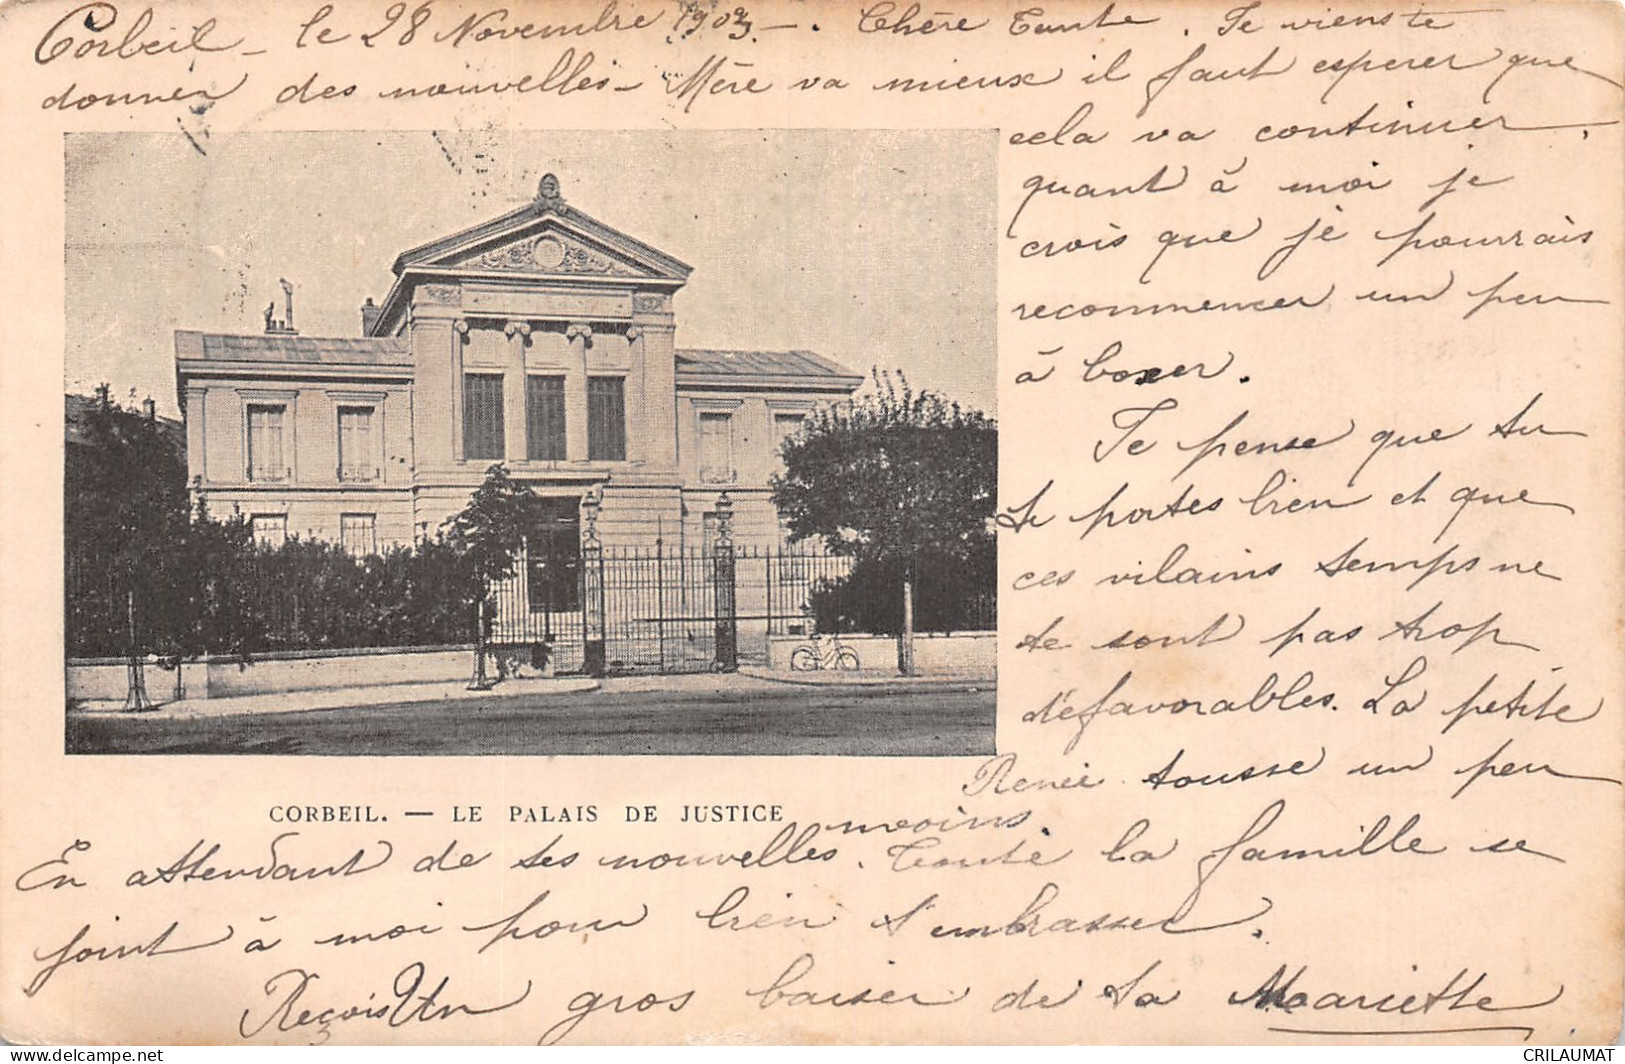 Corbeil _ le 28 Novembre 1903 _ . Chère Tante . Je viens te
donner des nouvelles _ Mère va mieux il faut esperer que
cela va continuer .
quant à moi je
crois que je pourrais
recommencer un peu
à boxer .
Je pense que tu
te portes bien et que
ces vilains temps ne
te sont pas trop
défavorables. La petite
Renée tousse un peu
moins .
CORBEIL. — LE PALAIS DE JUSTICE
En attendant de tes nouvelles . Toute la famille se
joint à moi pour bien t'embrasser .
Reçois Un gros baiser de ta Mariette
delcampe.net
CRILAUMAT